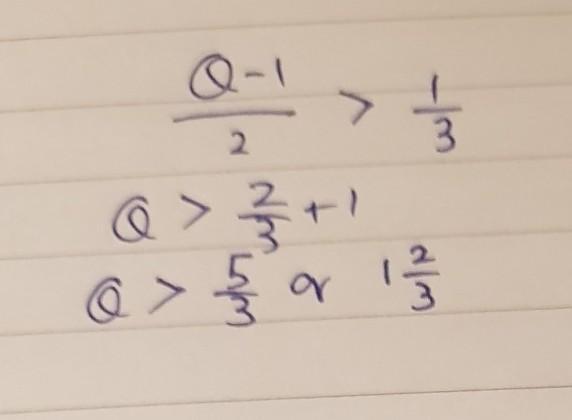 (Q-1)/2 > 1/3
Q > 2/3 + 1
Q > 5/3 or 1 2/3